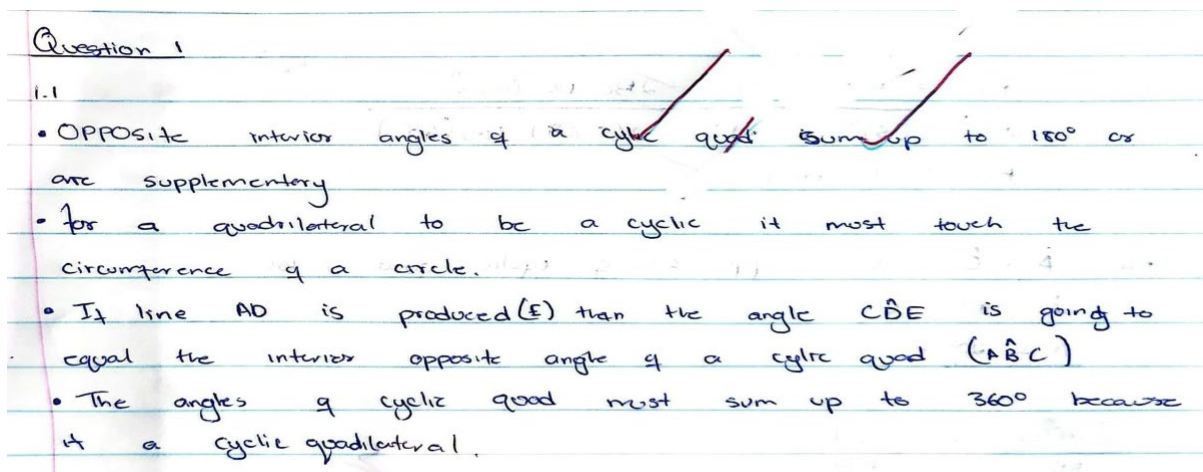 Question 1
1.1
• Opposite interior angles of a cylic quad sum up to 180° or
are supplementery
• for a quadrilateral to be a cyclic it must touch the
circumference of a circle.
• If line AD is produced (E) than the angle CD̂E is going to
equal the interior opposite angle of a cylic quad (AB̂C)
• The angles of cyclic quad must sum up to 360° because
it a cyclic quadilateral.